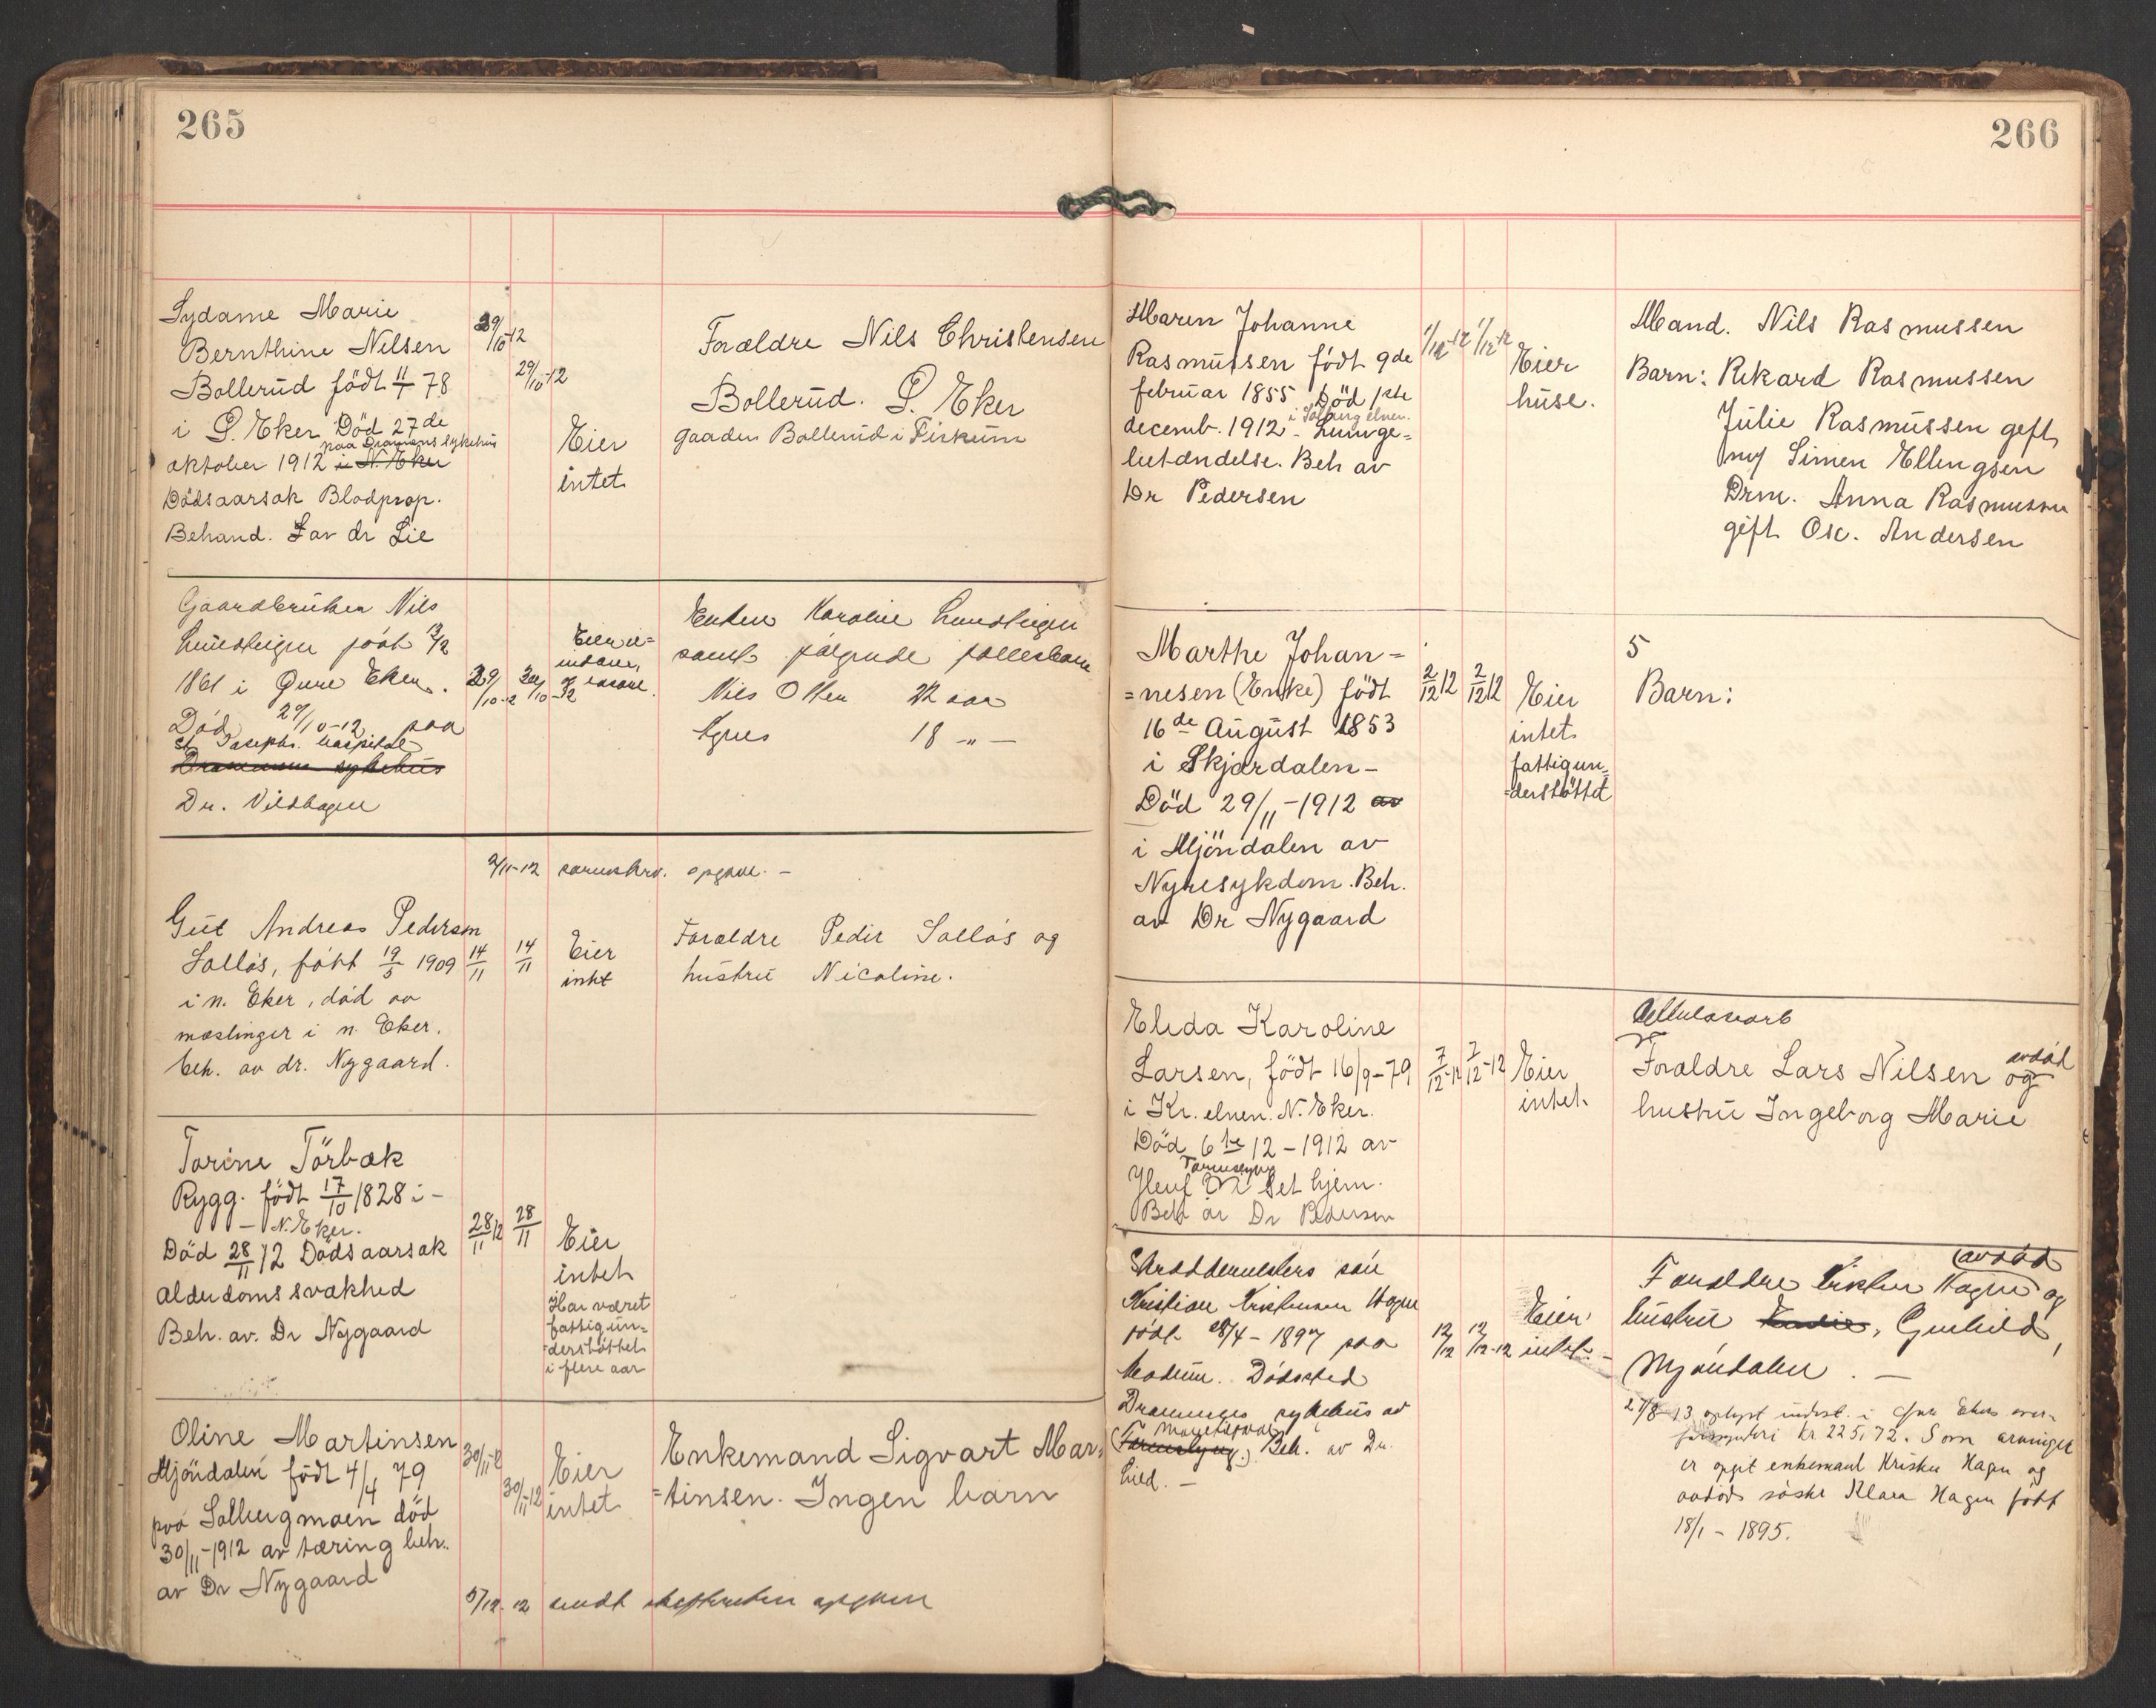 265
Lydame Marie
Bernthine Nilsen
Bollerud födt 11/7 78
i Ö. Eker Död 27de
paa Dramens sykehus
oktober 1912 i N. Eker
Dödsaarsak Blodprop.
Behand. av dr Lie
29/10-12
29/10-12
Eier
intet
Forældre Nils Christensen
Bollerud. Ö. Eker
gaarden Bollerud i Fiskum
Gaardbruker Nils
Lundteigen födt 13/2
1861 i Øvre Eker.
Død 29/10-12 paa
St. Josephs hospital
Drammens sykehus
Dr. Vildhagen
29/10-12
30/10-12
Eier
Enken Karoline Lundteigen
samt følgende fællesbarn
Nils Otter 22 aar
Agnes 18 -"-
2/11-12 opgave. -
Gut Andreas Pedersen
Solløs, født 19/5 1909
i n. Eker, död av
mæslinger i n. Eker.
beh. av dr. Nygaard.
14/11
14/11
Eier
intet
Forældre Peder Solløs og
hustru Nicoline.
Torine Törbæk
Rygg. födt 17/10 1828 i -
- N. Eker.
Död 28/11 12 Dödsaarsak
alderdomssvakhed
Beh. av. Dr Nygaard
28/11 12
28/11
Eier
intet
Har været
fattigun=
derstöttet
i flere aar
Oline Martinsen
Mjöndalen födt 4/4 79
paa Solbergmoen död
30/11-1912 av tæring beh.
av Dr Nygaard
30/11-12
30/11-12
Eier
intet
Enkemand Sigvart Mar=
=tinsen. Ingen barn
5/12-12 sendt skifteretten opgaven
266
Maren Johanne
Rasmussen födt 9de
februar 1855 Död 1ste
i Solbergelven.
decemb. 1912 - Lunge=
betændelse. Beh av
Dr Pedersen
1/12-12
1/12-12
Eier
huse.
Mand. Nils Rasmussen
Barn: Rikard Rasmussen
Julie Rasmussen gift
m/ Simen Ellingsen
Drm. Anna Rasmussen
gift Osc. Andersen
Marthe Johan=
=nesen (Enke) födt
16de August 1853
i Skjærdalen -
Död 29/11-1912 av
i Mjöndalen av
Nyresykdom. Beh.
av Dr Nygaard
2/12 12
2/12 12
Eier
intet
fattigun=
=derstöttet
5
Barn:
Elida Karoline
Larsen, födt 16/9-79
i Kr. elven. N. Eker.
Död 6te 12-1912 av
Beh av Dr Pedersen
7/12-12
7/12-12
Eier
intet.
Cellulosearb
avdöd
Forældre Lars Nilsen og
hustru Ingeborg Marie
Skræddermesters sön
Kristian Kristensen Hagen
födt 28/4-1897 paa
Modum. Dödssted
Drammens sykehus av
Beh. av Dr.
12/12
12/12-12
Eier
intet -
avdöd
Forældre Kristen Hagen og
hustru Gunhild,
Mjöndalen. -
27/8-13 oplyst indest. i Øvre Ekers over-
formynderi kr 225,72. Som arvinger
er opgit enkemand Kristen Hagen og
avdöds söster Klara Hagen född
18/1-1895.